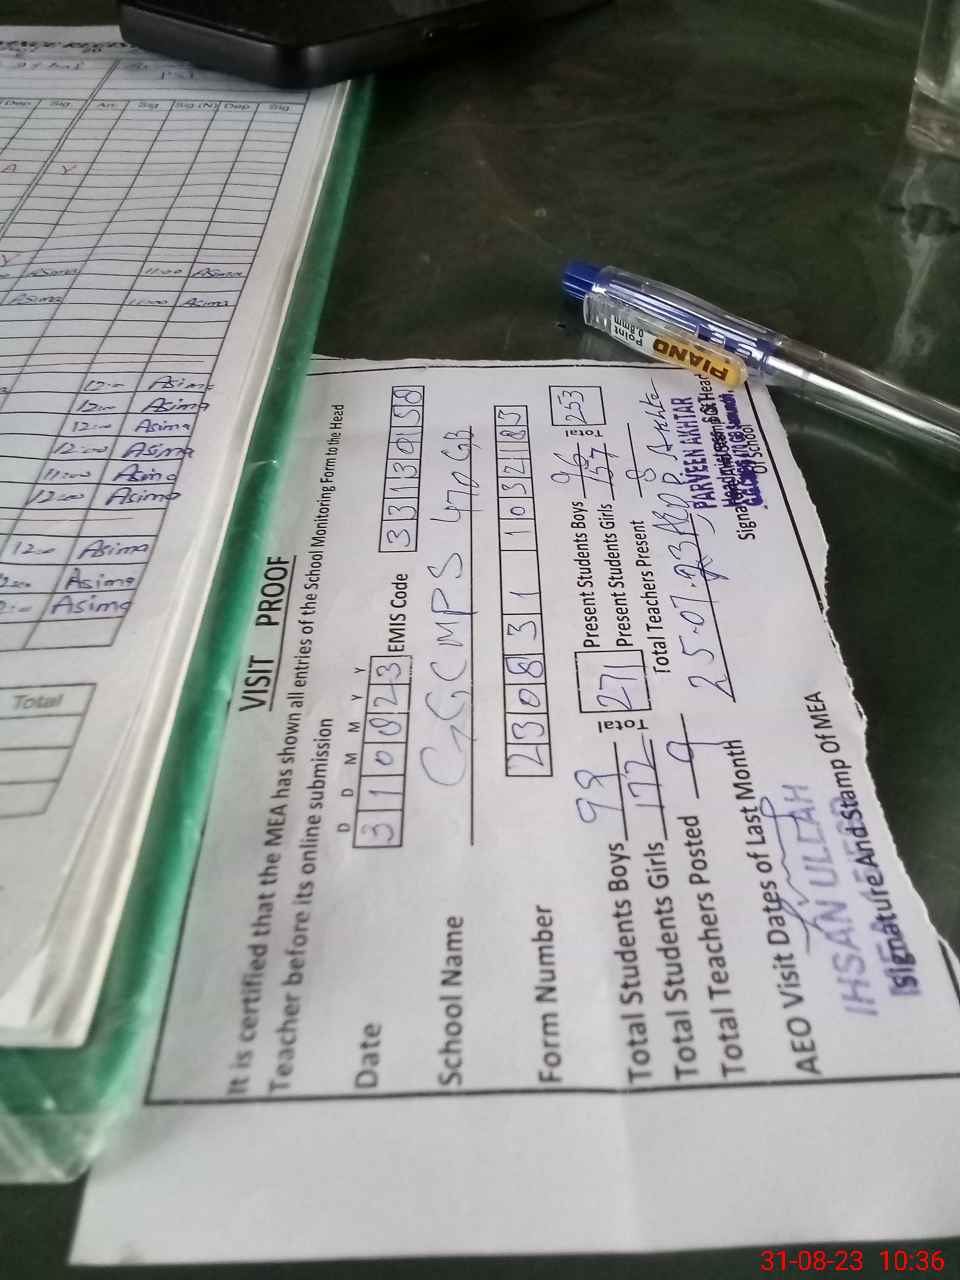 VISIT PROOF
It is certified that the MEA has shown all entries of the School Monitoring Form to the Head
Teacher before its online submission
D D M M Y Y
Date 310823 EMIS Code 33130158
School Name GGCMPS 470 GB
Form Number 230831 1032185
Total Students Boys 99 Total 271 Present Students Boys 96 Total 253
Total Students Girls 172 Present Students Girls 157
Total Teachers Posted 9 Total Teachers Present 8
AEO Visit Dates of Last Month 25.07.23
PARVEEN AKHTAR
IHSAN ULLAH
Signature And Stamp Of MEA
Of School
Dep Sig Arr Sig Sig (N) Dep Sig
A Y
Asima 11:00 Asima
Asima 11:00 Asima
12:00 Asima
12:00 Asima
12:00 Asima
12:00 Asima
11:00 Asima
12:00 Asima
12:00 Asima
Asima
Asima
Total
PIANO
Point
0.8mm
31-08-23 10:36